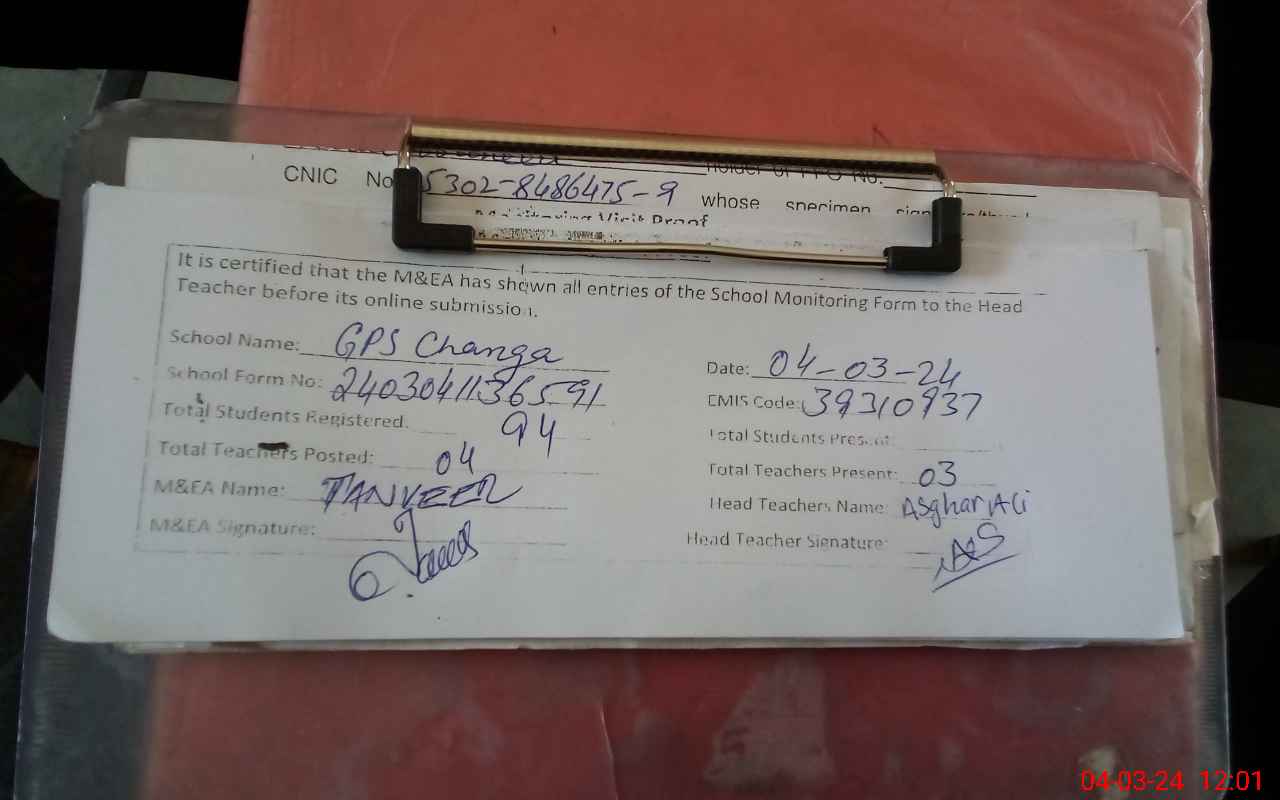 holder of PPO No.
CNIC No 5302-8486475-9 whose specimen
Visit Proof
It is certified that the M&EA has shown all entries of the School Monitoring Form to the Head
Teacher before its online submission.
School Name: GPS Changa
Date: 04-03-24
School Form No: 2403041136591
EMIS Code: 39310937
Total Students Registered: 94
Total Students Present:
Total Teachers Posted: 04
Total Teachers Present: 03
M&EA Name: TANVEER
Head Teachers Name: Asghar Ali
M&EA Signature:
Head Teacher Signature:
04-03-24 12:01